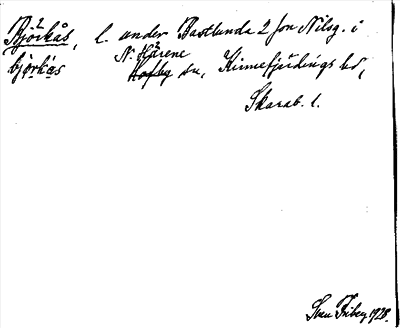 Björkås, l. under Bastlunda 2 Jon Nilsg. i
björkås N. Härene
Hofby sn, Kinnefjärdings hd,
Skarab. l.
Sven Friberg 1928.